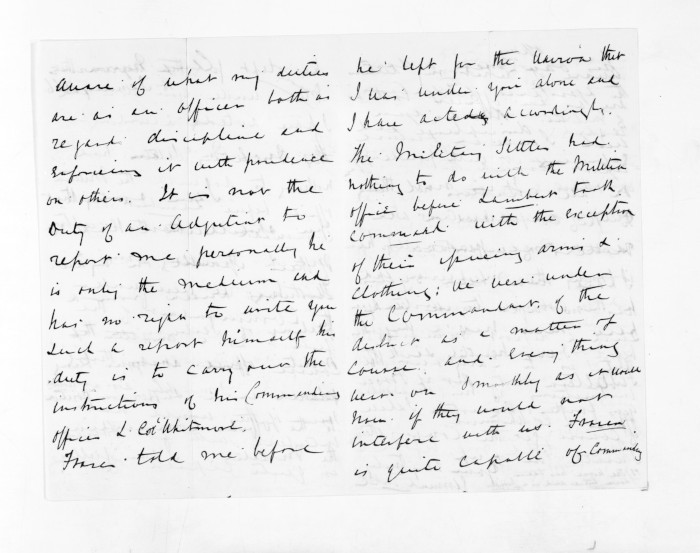 aware of what my duties
are as an officer both as
regard discipline and
enforcing it with prudence
on others. It is not the
Duty of an Adjutant to
report me personally he
is only the medium and
has no right to write you
such a report himself his
duty is to carry out the
instructions of his Commanding
officer L. Col Whitmore.
Fraser told me before
he left for the Wairoa that
I was under you alone and
I have acted accordingly.
The Military Settlers had
nothing to do with the Militia
office before Lambert took
Command with the exception
of their issuing arms &
Clothing; We were under
the Commandant of the
district as a matter of
Course and everything
went on smoothly as it would
now if they would not
interfere with us. Fraser
is quite capable of Commanding